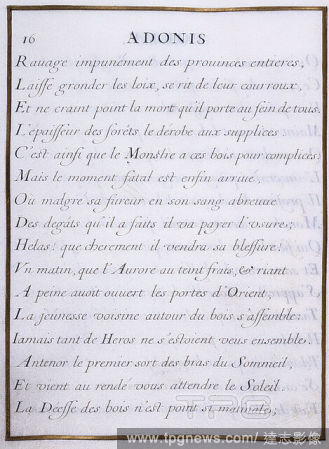 16
ADONIS
Rauage impunément des prouinces entieres,
Laisse gronder les loix, se rit de leur courroux,
Et ne craint point la mort qu'il porte au sein de tous.
L'épaisseur des foréts le dérobe aux supplices:
C'est ainsi que le Monstre a ces bois pour complices.
Mais le moment fatal est enfin arriué,
Ou malgré sa fureur en son sang abreuué
Des degâts qu'il a faits il va payer l'vsure;
Helas! que cherement il vendra sa blessure!
Vn matin, que l'Aurore au teint frais, & riant
A peine auoit ouuert les portes d'Orient,
La jeunesse voisine autour du bois s'assemble:
Iamais tant de Heros ne s'estoient veus ensemble.
Antenor le premier sort des bras du Sommeil,
Et vient au rendé-vous attendre le Soleil.
La Déesse des bois n'est point si matinale;
TPG
www.tpgnews.com/ 達志影像